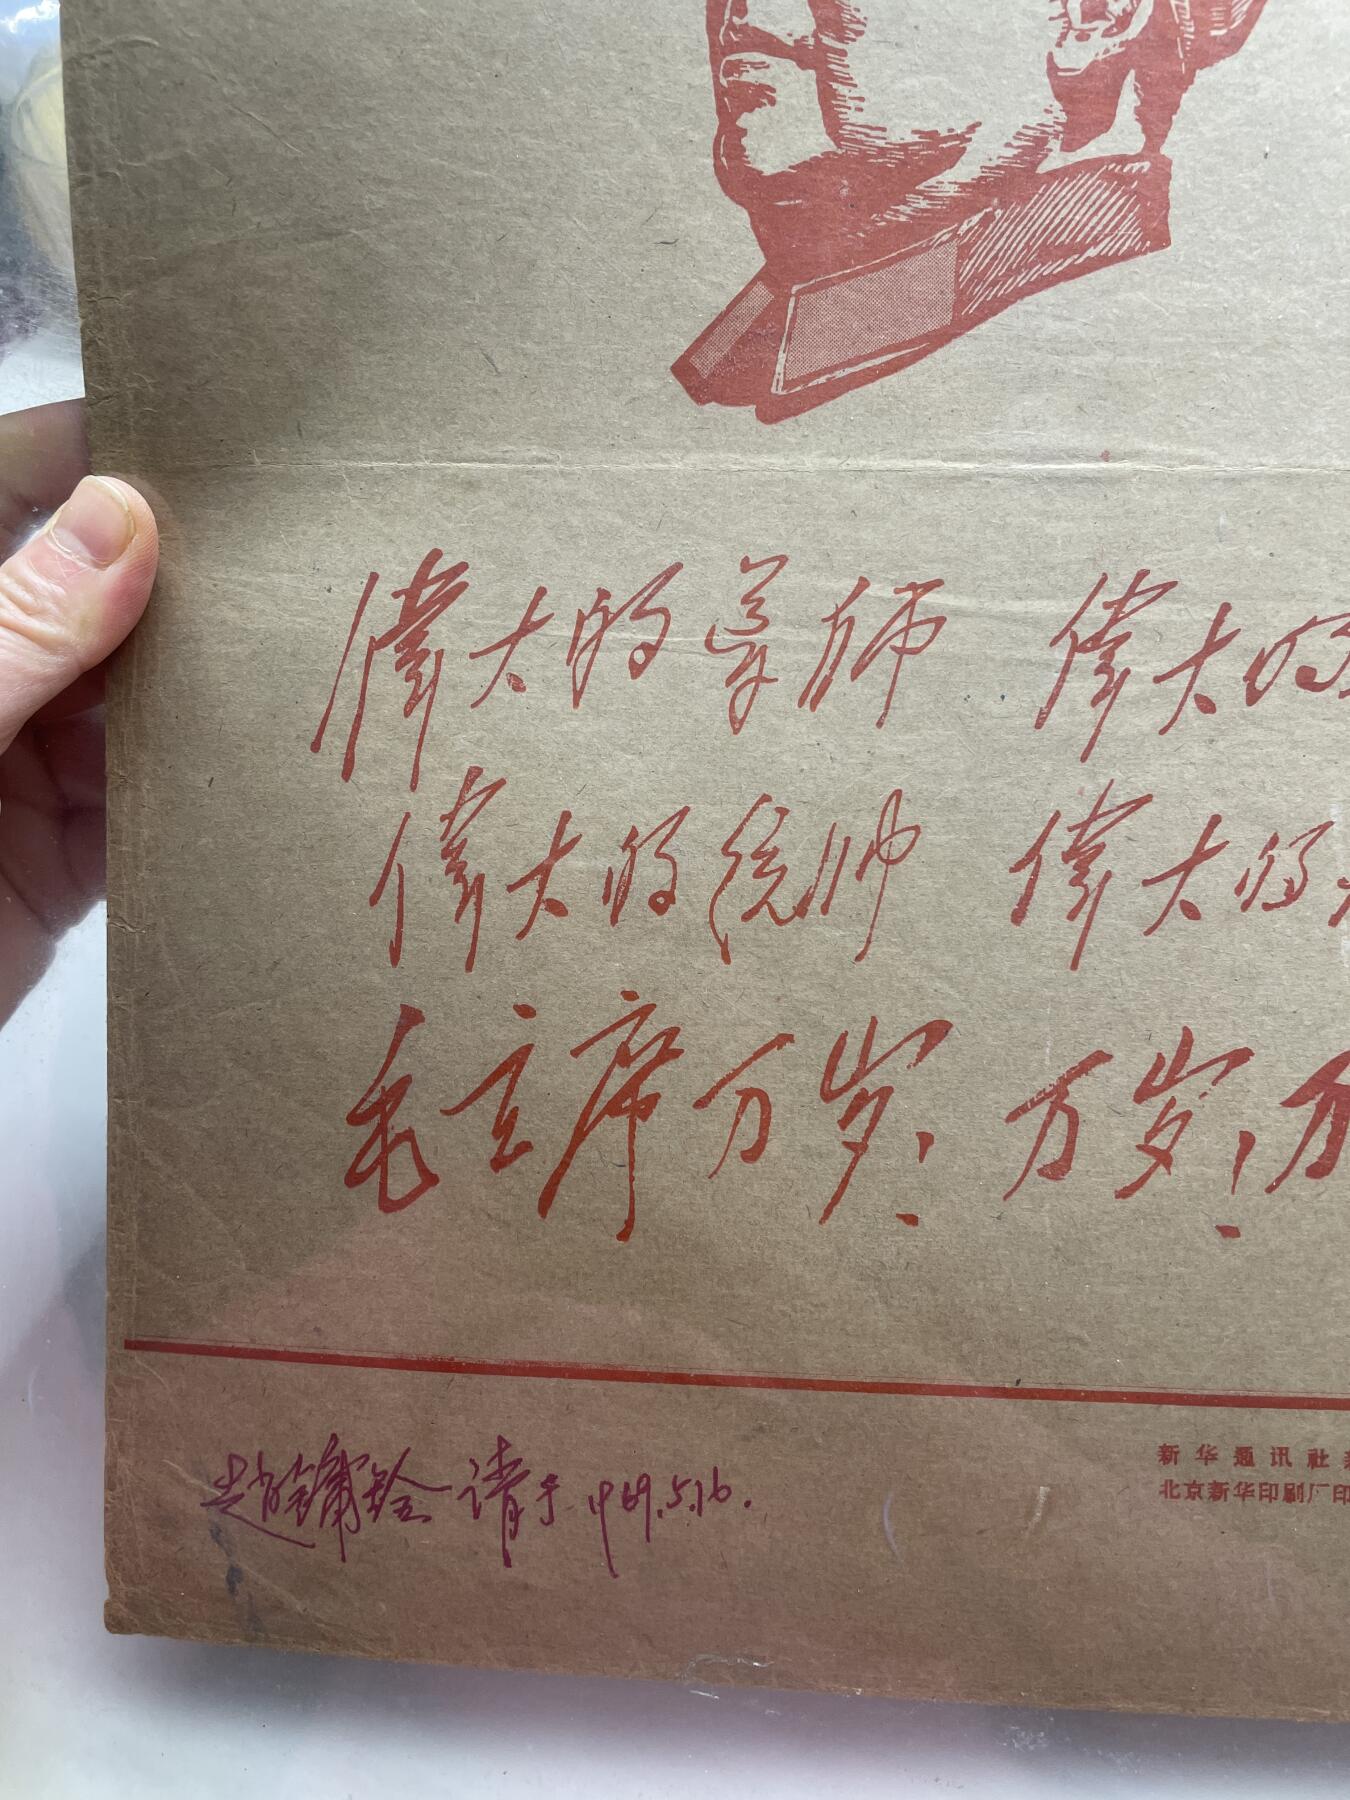 偉大的导师 偉大的
偉大的统帅 偉大的
毛主席万岁！万岁！万
新华通讯社
北京新华印刷厂印
赵 请于 1969.5.16.